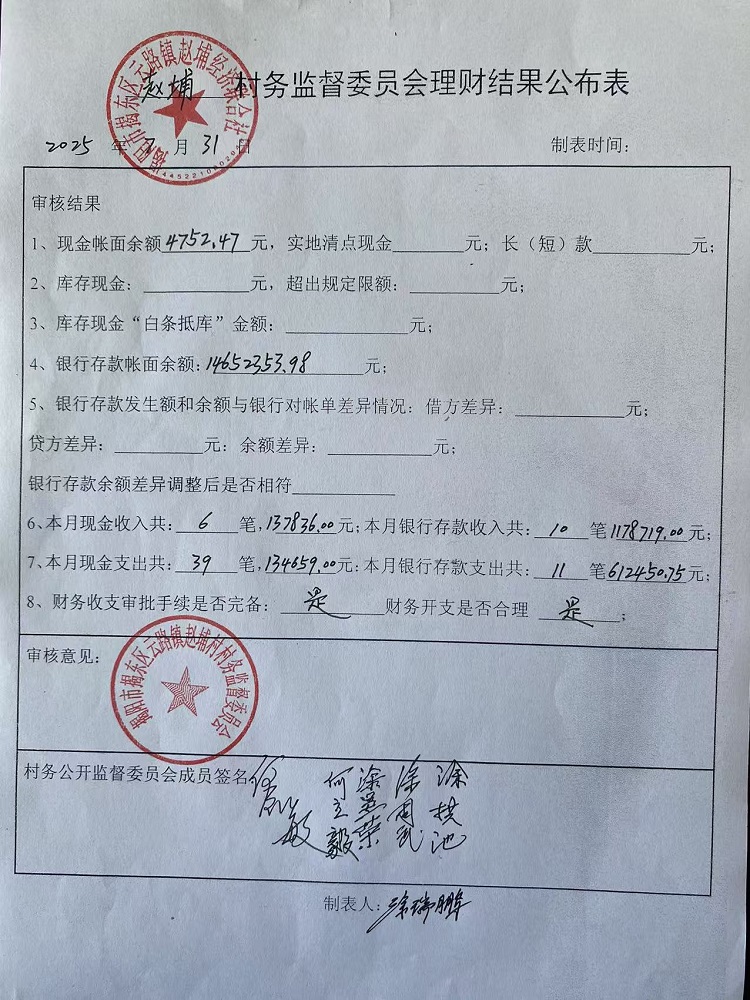 赵埔 村务监督委员会理财结果公布表
2025 年 7 月 31 日 制表时间:
审核结果
1、现金帐面余额 4752.47 元，实地清点现金______元；长（短）款______元；
2、库存现金：______元，超出规定限额：______元；
3、库存现金“白条抵库”金额：______元；
4、银行存款帐面余额：14652353.98 元；
5、银行存款发生额和余额与银行对帐单差异情况：借方差异：______元；
贷方差异：______元：余额差异：______元；
银行存款余额差异调整后是否相符______
6、本月现金收入共：6 笔，137836.00元；本月银行存款收入共：10 笔1178719.00元；
7、本月现金支出共：39 笔，134659.00元：本月银行存款支出共：11 笔612450.75元；
8、财务收支审批手续是否完备：是 财务开支是否合理 是；
审核意见：
揭阳市揭东区云路镇赵埔村村务监督委员会
村务公开监督委员会成员签名
何立毅
制表人：
揭阳市揭东区云路镇赵埔经济联合社